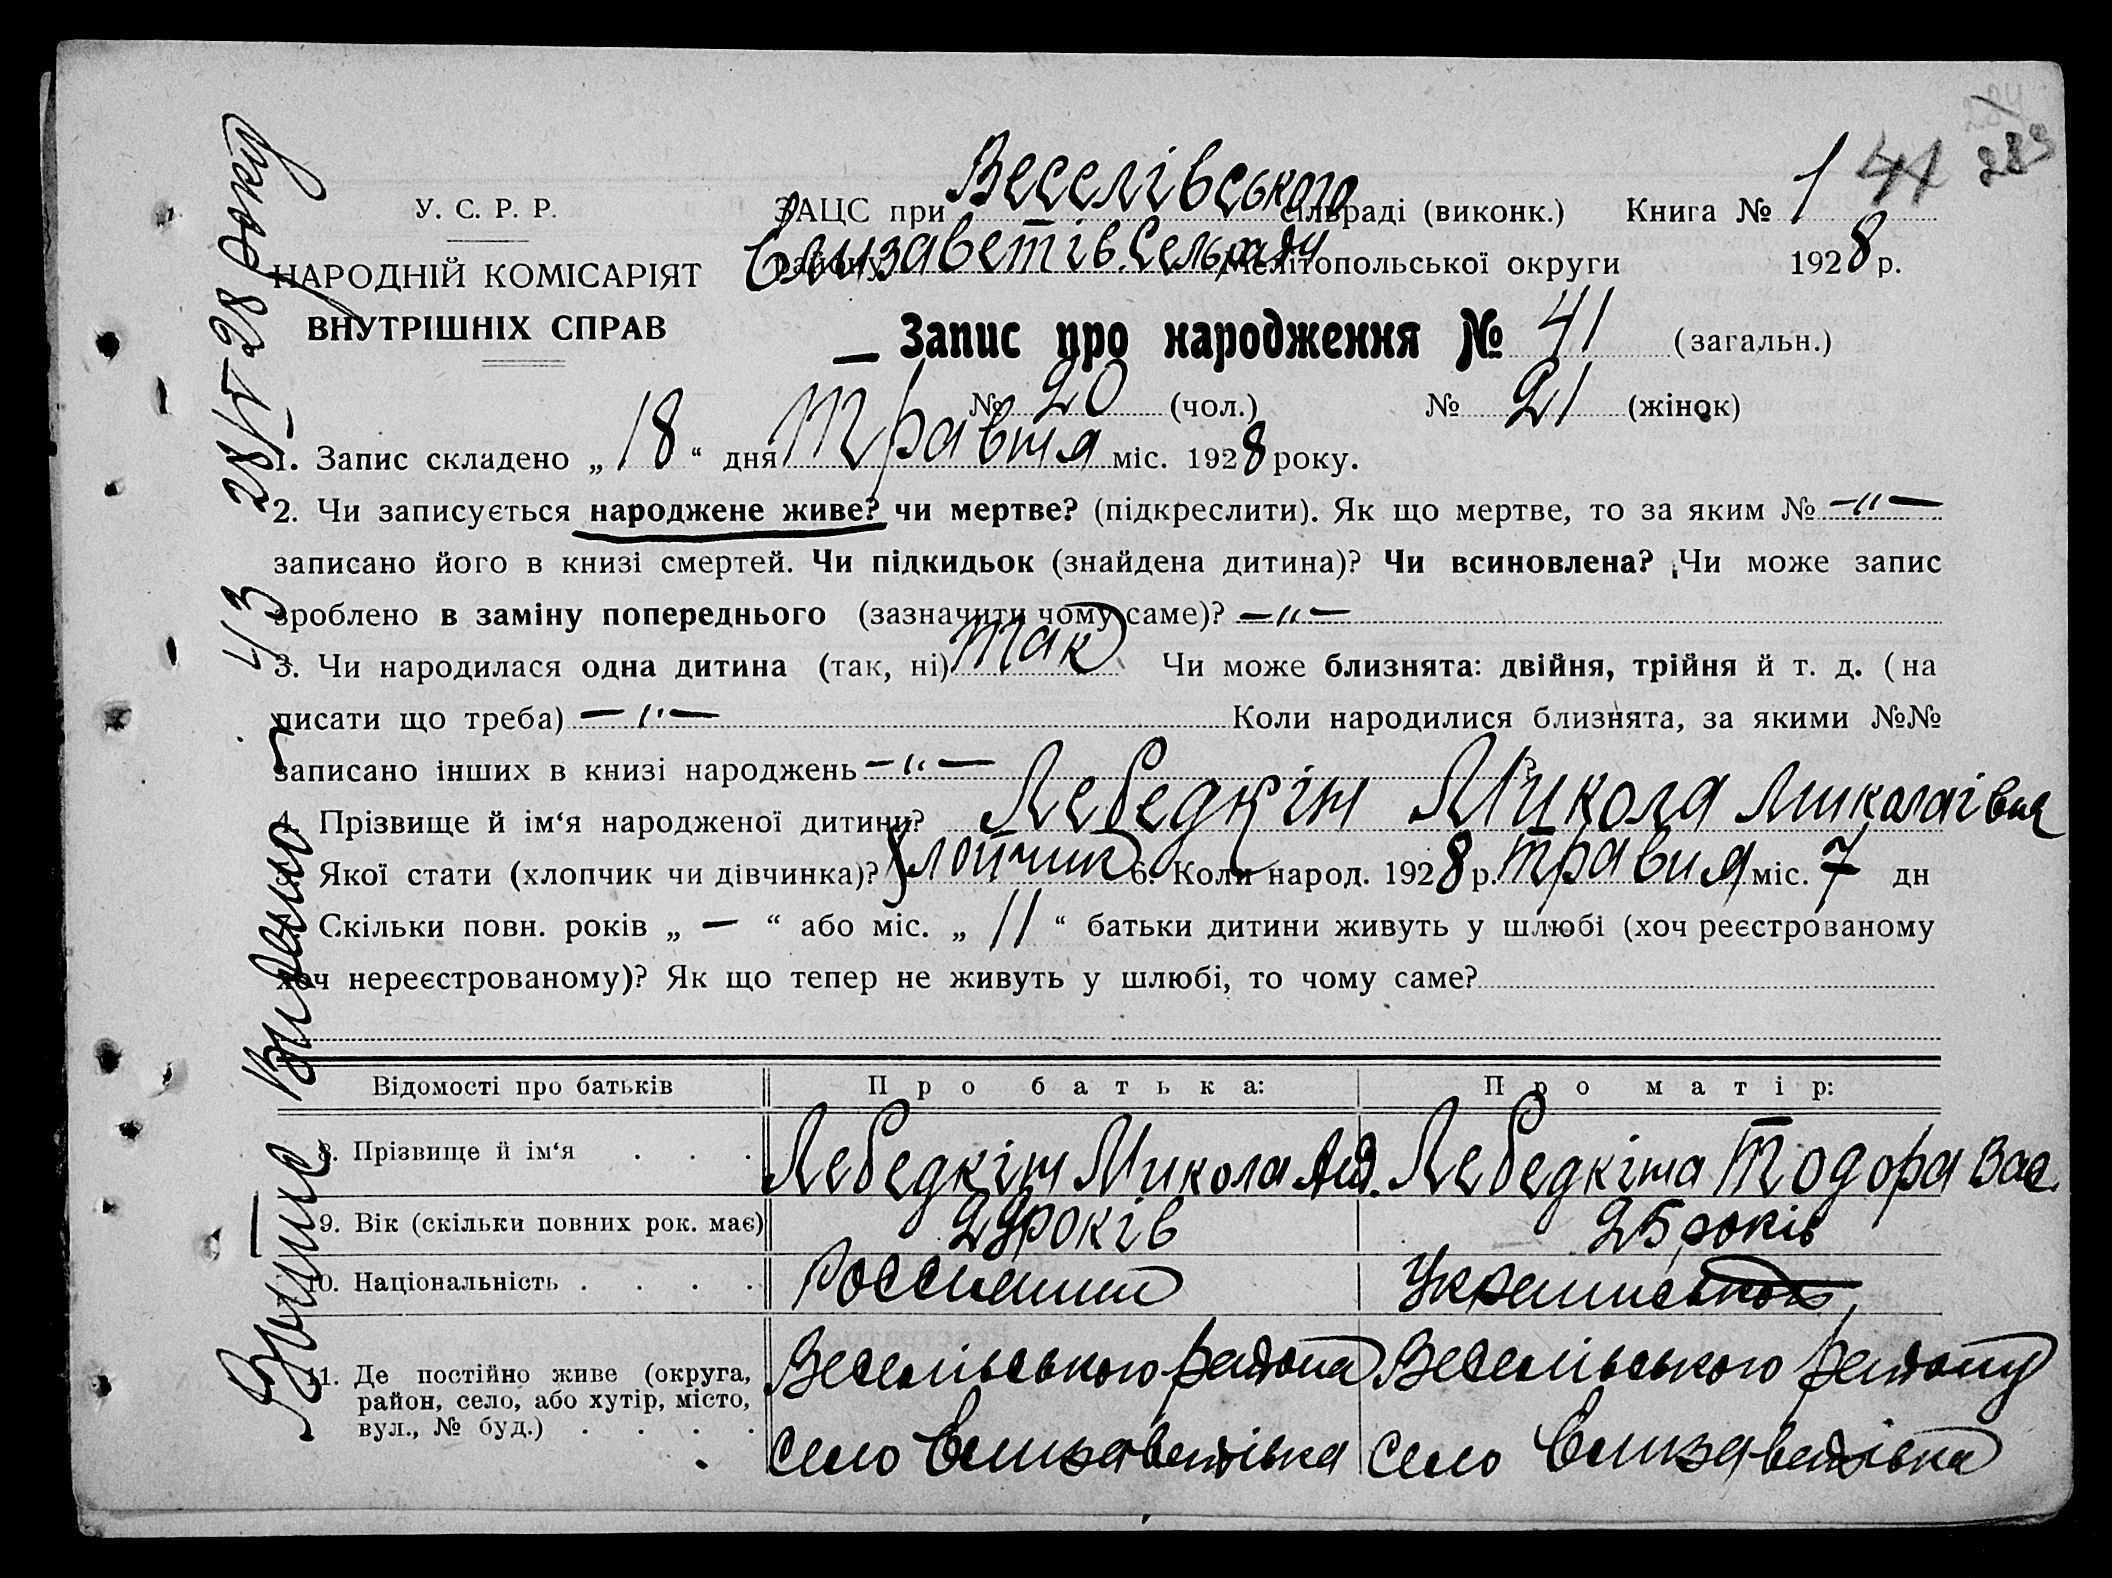 44 283
У. С. Р. Р.
НАРОДНІЙ КОМІСАРІЯТ
ВНУТРІШНІХ СПРАВ
ЗАЦС при Веселівського сільраді (виконк.) Книга № 1
району Єлизаветів. Сельради Мелітопольської округи 1928 р.
Запис про народження № 41 (загальн.)
№ 20 (чол.) № 21 (жінок)
1. Запис складено „ 18 “ дня Травня міс. 1928 року.
2. Чи записується народжене живе? чи мертве? (підкреслити). Як що мертве, то за яким № —"—
записано його в книзі смертей. Чи підкидьок (знайдена дитина)? Чи всиновлена? Чи може запис
зроблено в заміну попереднього (зазначити чому саме)? —"—
3. Чи народилася одна дитина (так, ні) Так Чи може близнята: двійня, трійня й т. д. (на
писати що треба) —"— Коли народилися близнята, за якими №№
записано інших в книзі народжень —"—
4. Прізвище й ім‘я народженої дитини? Лебедкін Микола Миколаівна
Якої стати (хлопчик чи дівчинка)? Хлопчик 6. Коли народ. 1928 р. травня міс. 7 дн
Скільки повн. років „ — “ або міс. „ 11 “ батьки дитини живуть у шлюбі (хоч реєстрованому
хоч нереєстрованому)? Як що тепер не живуть у шлюбі, то чому саме?
Відомості про батьків Про батька: Про матір:
8. Прізвище й ім‘я . . . Лебедкін Микола Лебедкіна Тодора Вас.
9. Вік (скільки повних рок. має) 29 років 25 років
10. Національність . . . . Россиянин
11. Де постійно живе (округа,
район, село, або хутір, місто,
вул., № буд.) . . . .
Веселівського района Веселівського району
село Єлизаветівка село Єлизаветівка
43 28/V 28 року